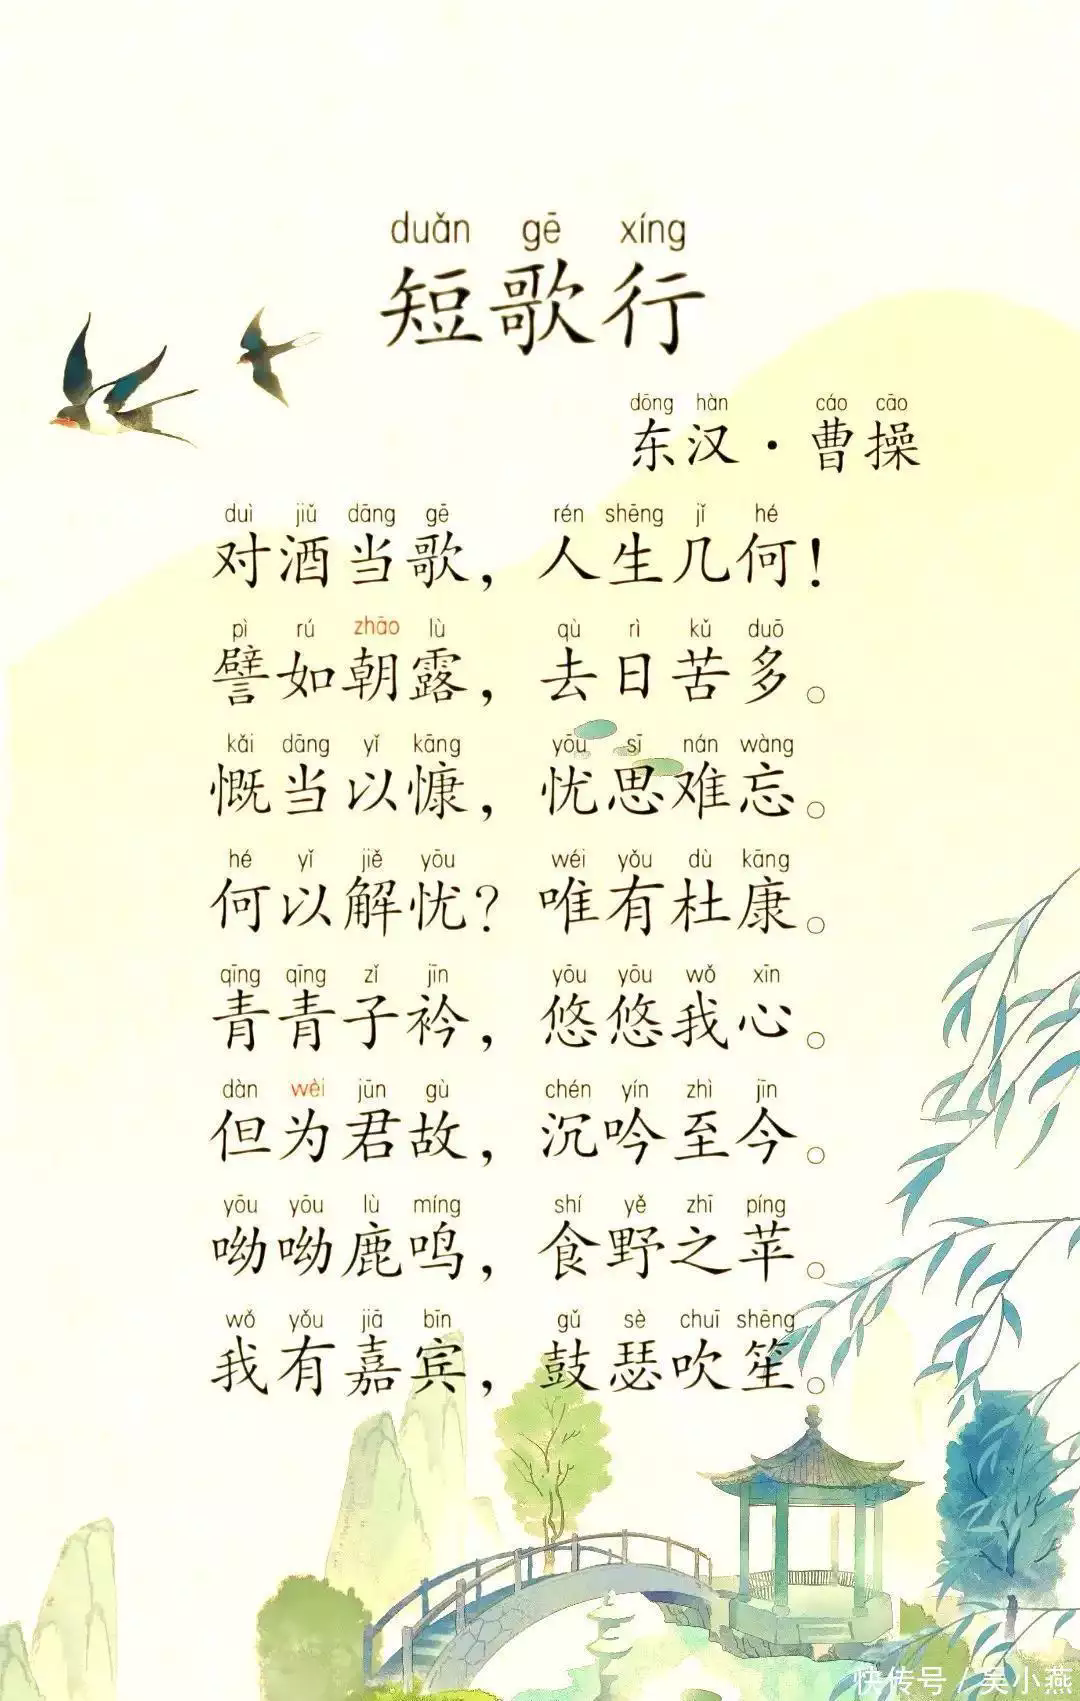 duǎn gē xíng
短歌行
dōng hàn cáo cāo
东汉·曹操
duì jiǔ dāng gē rén shēng jǐ hé
对酒当歌，人生几何！
pì rú zhāo lù qù rì kǔ duō
譬如朝露，去日苦多。
kǎi dāng yǐ kāng yōu sī nán wàng
慨当以慷，忧思难忘。
hé yǐ jiě yōu wéi yǒu dù kāng
何以解忧？唯有杜康。
qīng qīng zǐ jīn yōu yōu wǒ xīn
青青子衿，悠悠我心。
dàn wèi jūn gù chén yín zhì jīn
但为君故，沉吟至今。
yōu yōu lù míng shí yě zhī píng
呦呦鹿鸣，食野之苹。
wǒ yǒu jiā bīn gǔ sè chuī shēng
我有嘉宾，鼓瑟吹笙。
快传号／吴小燕